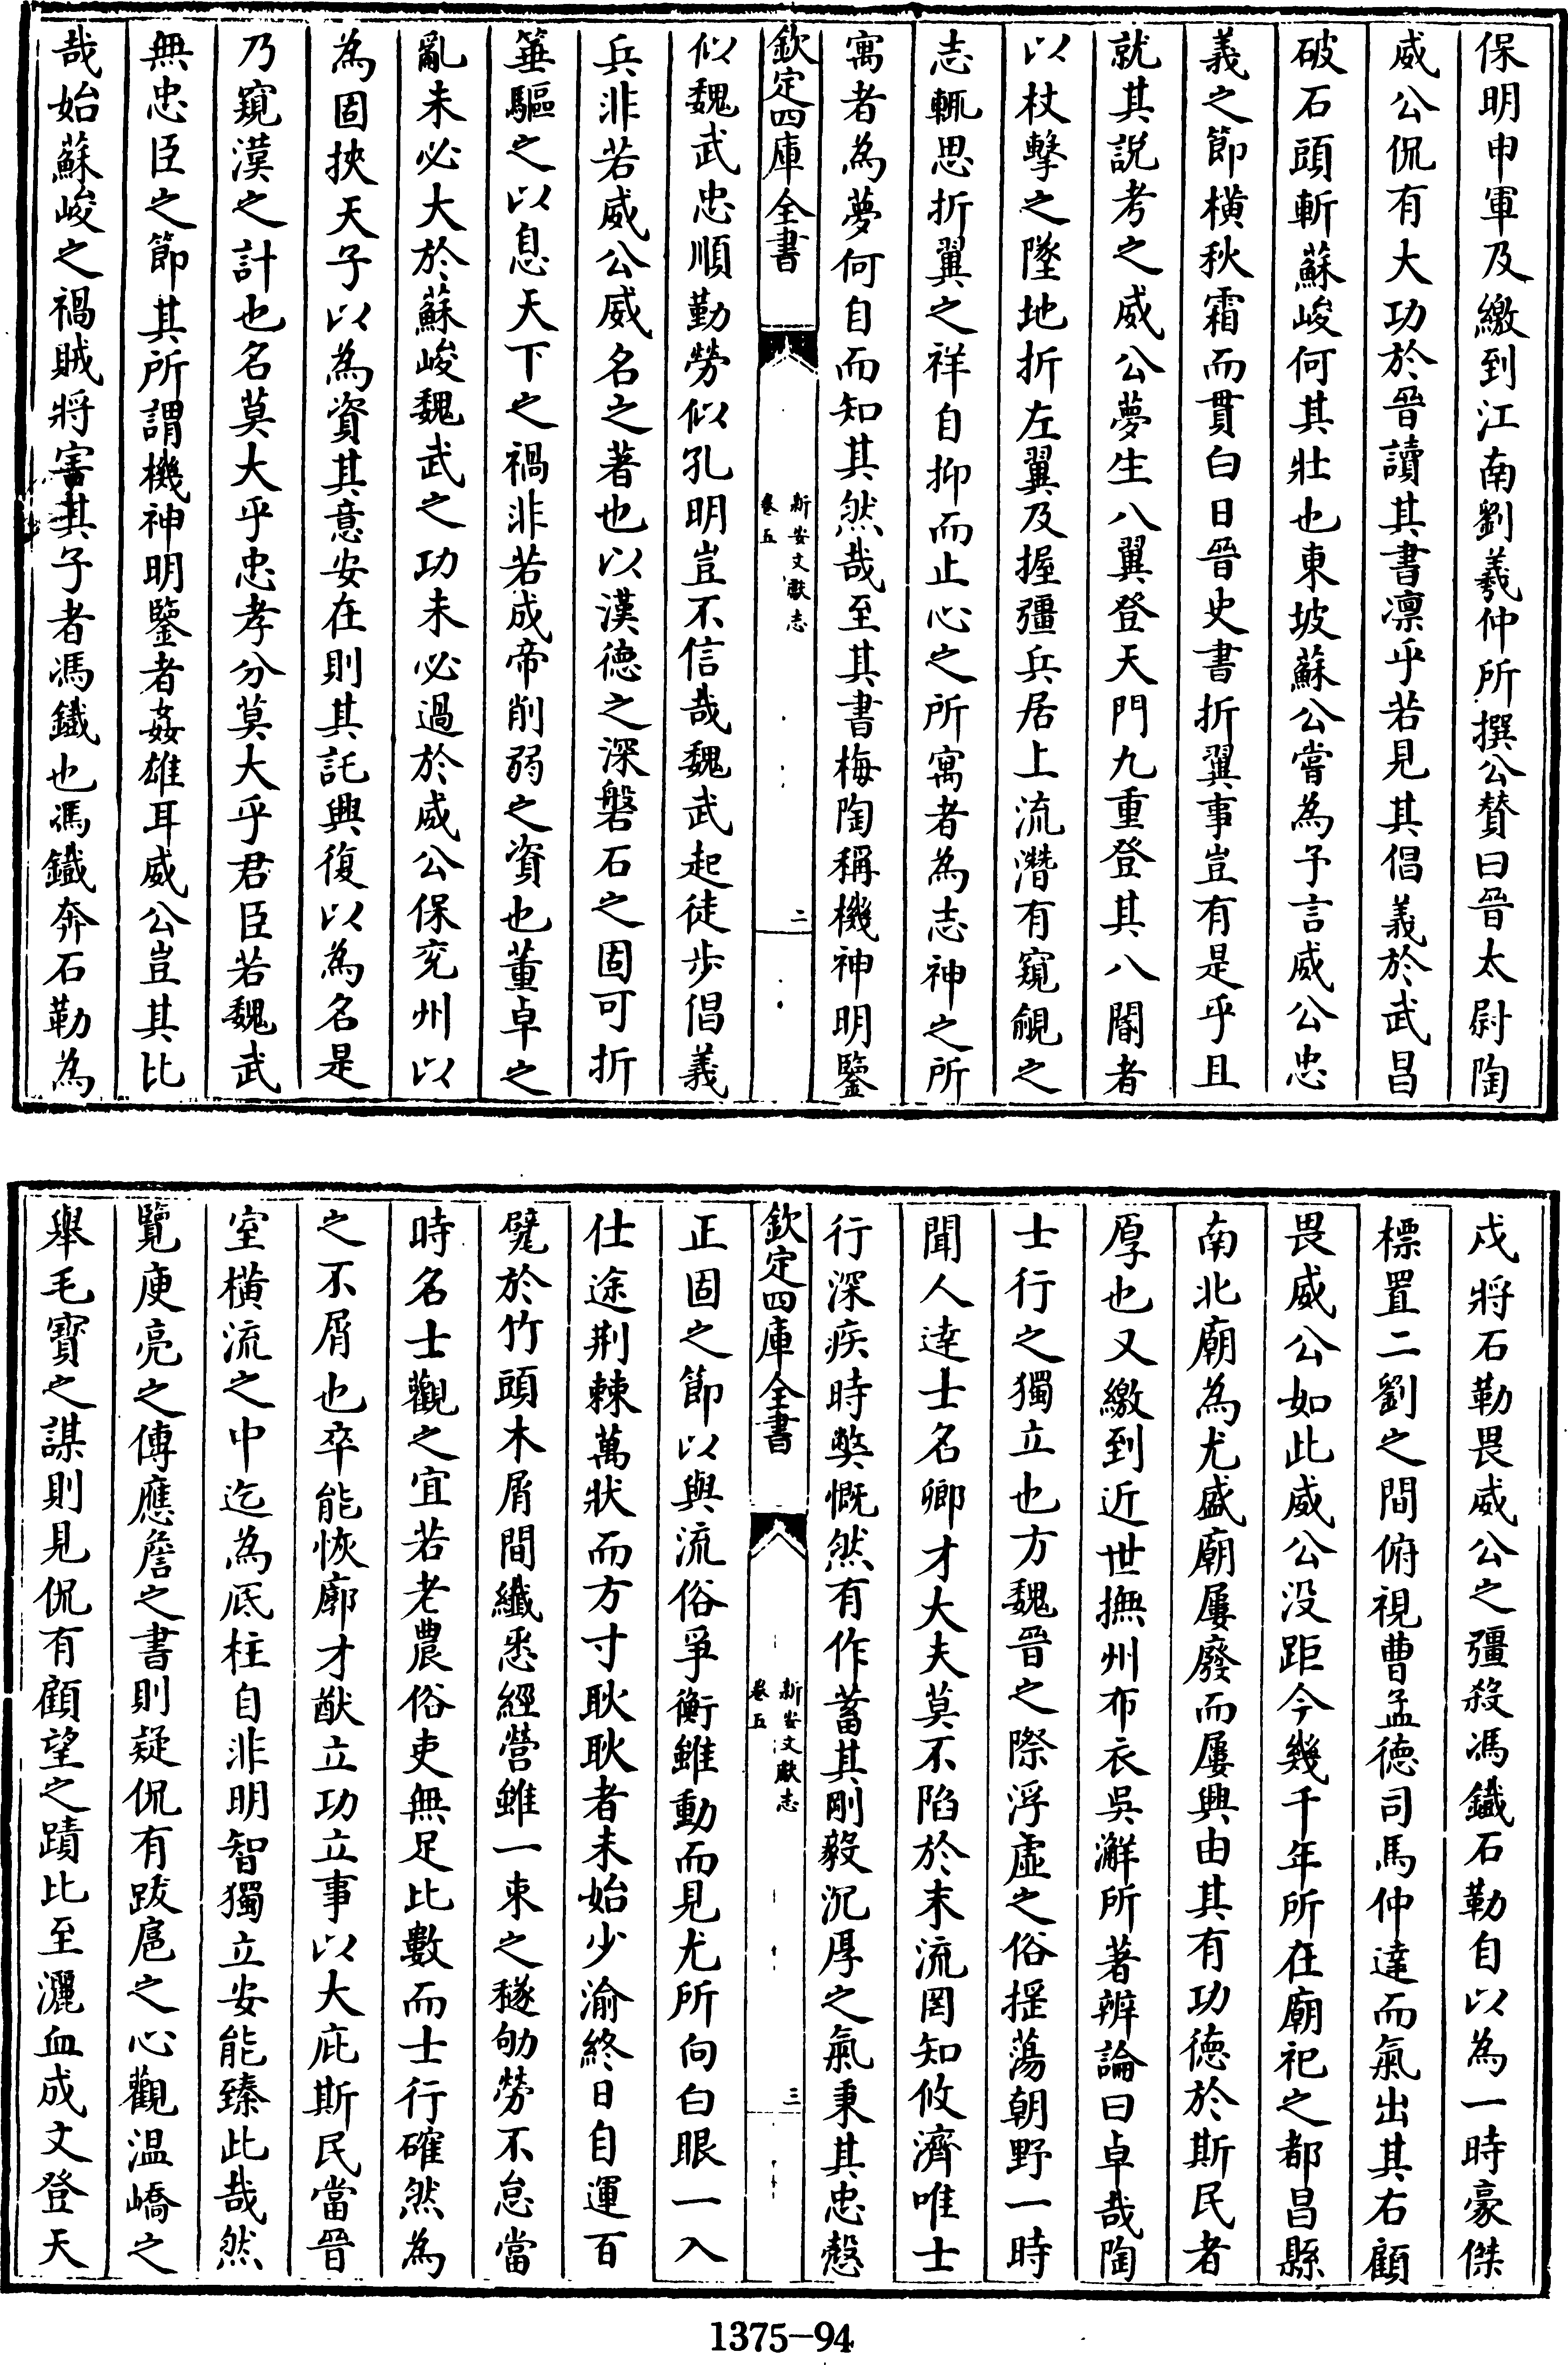 保明申軍及繳到江南劉羲仲所撰公賛曰晉太尉陶
威公侃有大功於晉讀其書凛乎若見其倡義於武昌
破石頭斬蘇峻何其壯也東坡蘇公嘗為予言威公忠
義之節橫秋霜而貫白日晉史書折翼事豈有是乎且
就其說考之威公夢生八翼登天門九重登其八閽者
以杖擊之墜地折左翼及握彊兵居上流潛有窺覦之
志輒思折翼之祥自抑而止心之所寓者為志神之所
寓者為夢何自而知其然哉至其書梅陶稱機神明鑒
欽定四庫全書
新安文獻志
卷五
二
似魏武忠順勤勞似孔明豈不信哉魏武起徒步倡義
兵非若威公威名之著也以漢德之深磐石之固可折
箠驅之以息天下之禍非若成帝削弱之資也董卓之
亂未必大於蘇峻魏武之功未必過於威公保兖州以
為固挾天子以為資其意安在則其託興復以為名是
乃窺漢之計也名莫大乎忠孝分莫大乎君臣若魏武
無忠臣之節其所謂機神明鑒者姦雄耳威公豈其比
哉始蘇峻之禍賊將害其子者馮鐵也馮鐵奔石勒為
戍將石勒畏威公之彊殺馮鐵石勒自以為一時豪傑
標置二劉之間俯視曹孟德司馬仲達而氣出其右顧
畏威公如此威公没距今幾千年所在廟祀之都昌縣
南北廟為尤盛廟屢廢而屢興由其有功德於斯民者
厚也又繳到近世撫州布衣吳澥所著辨論曰卓哉陶
士行之獨立也方魏晉之際浮虛之俗搖蕩朝野一時
聞人達士名卿才大夫莫不陷於末流罔知攸濟唯士
行深疾時弊慨然有作蓄其剛毅沉厚之氣秉其忠慤
欽定四庫全書
新安文獻志
卷五
三
正固之節以與流俗爭衡雖動而見尤所向白眼一入
仕途荆棘萬狀而方寸耿耿者未始少渝終日自運百
甓於竹頭木屑間纖悉經營雖一束之穟劬勞不怠當
時名士觀之宜若老農俗吏無足比數而士行確然為
之不屑也卒能恢廓才猷立功立事以大庇斯民當晉
室橫流之中迄為底柱自非明智獨立安能臻此哉然
覽庾亮之傳應詹之書則疑侃有跋扈之心觀温嶠之
舉毛寳之謀則見侃有顧望之蹟比至灑血成文登天
1375-94